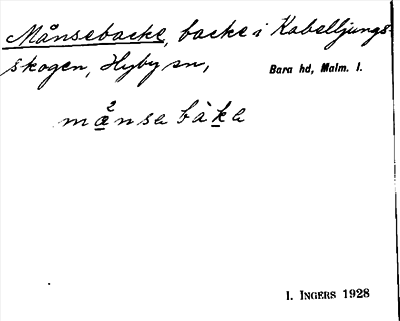 Månsebacke, backe i Kabelljungs-
skogen, Hyby sn, Bara hd, Malm. l.
månsa bàka
I. INGERS 1928